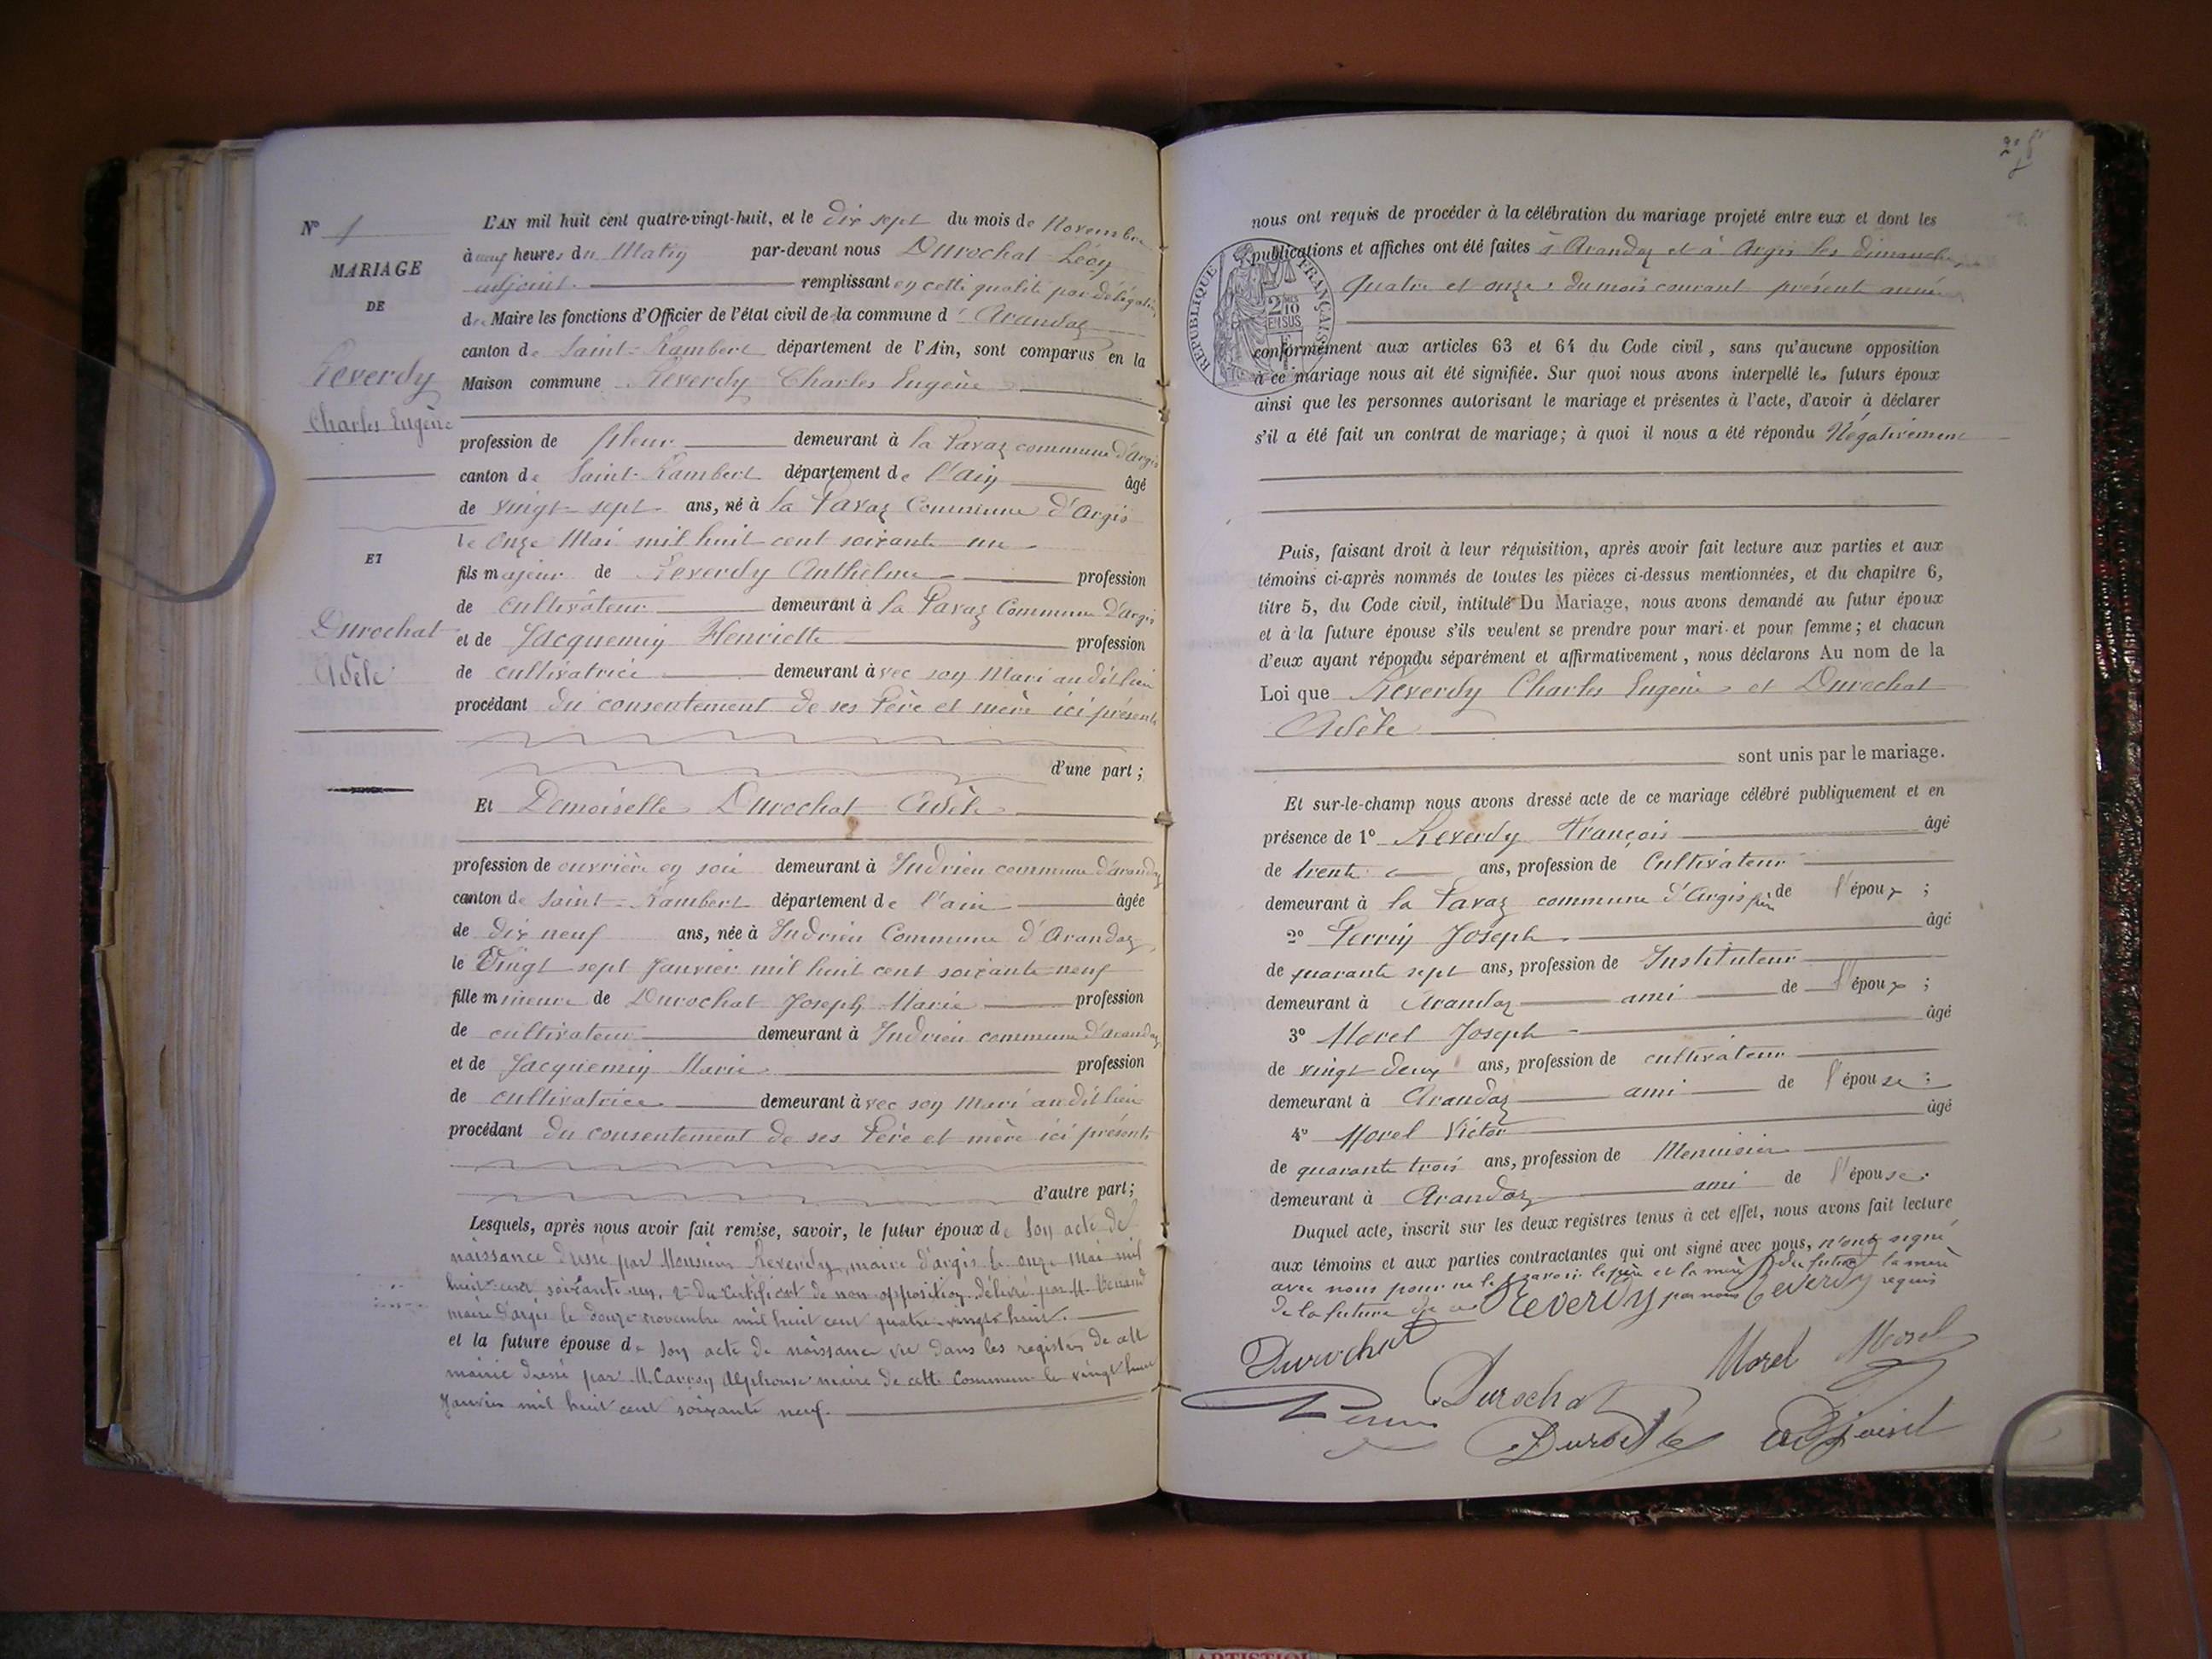 N° 1
MARIAGE
DE
Reverdy
Charles Eugène
ET
Durochat
Adèle
L'AN mil huit cent quatre-vingt-huit, et le Dix sept du mois de Novembre
à neuf heures du Matin par-devant nous Durochat Léon
adjoint remplissant en cette qualité par délégation
du Maire les fonctions d'Officier de l'état civil de la commune d'Arandaz
canton de Saint-Rambert département de l'Ain, sont comparus en la
Maison commune Reverdy Charles Eugène
profession de fileur demeurant à la Pavaz commune d'Argis
canton de Saint-Rambert département de l'ain âgé
de vingt-sept ans, né à la Pavaz Commune d'Argis
le Onze Mai mil huit cent soixante un
fils majeur de Reverdy Anthelme profession
de cultivateur demeurant à la Pavaz Commune d'Argis
et de Jacquemin Henriette profession
de cultivatrice demeurant avec son Mari au dit lieu
procédant du consentement de ses Père et mère ici présents
d'une part ;
Et Demoiselle Durochat Adèle
profession de ouvrière en soie demeurant à Indrieu commune d'arandaz
canton de Saint-Rambert département de l'ain âgée
de dix neuf ans, née à Indrieu Commune d'Arandaz
le Vingt sept Janvier mil huit cent soixante neuf
fille mineure de Durochat Joseph Marie profession
de cultivateur demeurant à Indrieu commune d'arandaz
et de Jacquemin Marie profession
de cultivatrice demeurant avec son Mari au dit lieu
procédant du consentement de ses Père et mère ici présents
d'autre part ;
Lesquels, après nous avoir fait remise, savoir, le futur époux de son acte de
naissance dressé par Monsieur Reverdy, maire d'argis le onze Mai mil
huit cent soixante un, 2° du certificat de non opposition délivré par M.
maire d'argis le douze novembre mil huit cent quatre-vingt huit.
et la future épouse de son acte de naissance vu dans les registres de cette
mairie dressé par M. Alphonse maire de cette Commune le vingt huit
Janvier mil huit cent soixante neuf.
nous ont requis de procéder à la célébration du mariage projeté entre eux et dont les
publications et affiches ont été faites à Arandaz et à Argis les dimanches
Quatre et onze du mois courant présent année
RÉPUBLIQUE FRANÇAISE
2/10 EN SUS
conformément aux articles 63 et 64 du Code civil, sans qu'aucune opposition
à ce mariage nous ait été signifiée. Sur quoi nous avons interpellé les futurs époux
ainsi que les personnes autorisant le mariage et présentes à l'acte, d'avoir à déclarer
s'il a été fait un contrat de mariage; à quoi il nous a été répondu Négativement
Puis, faisant droit à leur réquisition, après avoir fait lecture aux parties et aux
témoins ci-après nommés de toutes les pièces ci-dessus mentionnées, et du chapitre 6,
titre 5, du Code civil, intitulé Du Mariage, nous avons demandé au futur époux
et à la future épouse s'ils veulent se prendre pour mari et pour femme ; et chacun
d'eux ayant répondu séparément et affirmativement, nous déclarons Au nom de la
Loi que Reverdy Charles Eugène et Durochat
Adèle
sont unis par le mariage.
Et sur-le-champ nous avons dressé acte de ce mariage célébré publiquement et en
présence de 1° Reverdy François âgé
de trente ans, profession de Cultivateur
demeurant à la Pavaz commune d'Argis de l'époux ;
2° Perrin Joseph âgé
de quarante sept ans, profession de Instituteur
demeurant à Arandaz ami de l'époux ;
3° Morel Joseph âgé
de vingt-deux ans, profession de cultivateur
demeurant à Arandaz ami de l'épouse ;
4° Morel Victor âgé
de quarante trois ans, profession de Menuisier
demeurant à Arandaz ami de l'épouse.
Duquel acte, inscrit sur les deux registres tenus à cet effet, nous avons fait lecture
aux témoins et aux parties contractantes qui ont signé avec nous, n'ont signé
avec nous pour ne le savoir le père et la mère du futur la mère
de la future de ce Reverdy par nous Reverdy requis
Durochat
Durochat
Morel Morel
Perrin
Durochat
adjoint